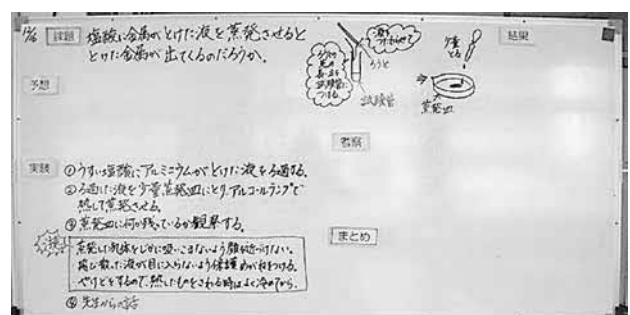 課題
塩酸に金属がとけた液を蒸発させると
とけた金属が出てくるのだろうか。
ろうと
試験管
少量
とる
蒸発皿
結果
予想
考察
実験
①うすい塩酸にアルミニウムがとけた液をろ過する。
②ろ過した液を少量蒸発皿にとり、アルコールランプで
熱して蒸発させる。
③蒸発皿に何が残っているか観察する。
注意
蒸発した気体をじかに吸いこまないよう顔を近づけない。
・飛び散った液が目に入らないよう保護めがねをつける。
・やけどをするので、熱したものをさわる時はよく冷めてから。
④先生からの話
まとめ